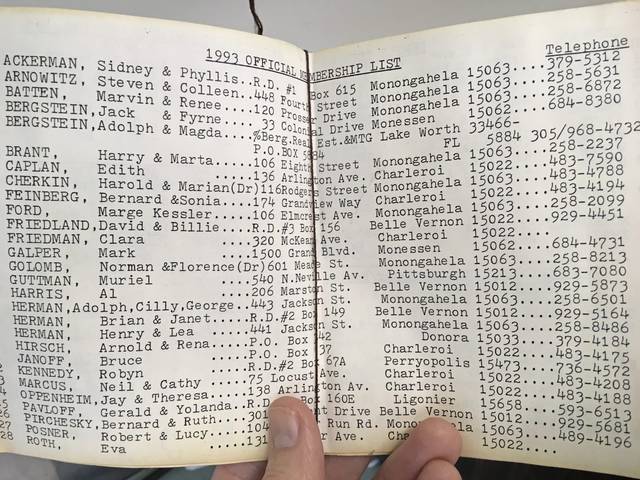 1993 OFFICIAL MEMBERSHIP LIST Telephone
ACKERMAN, Sidney & Phyllis..R.D. #1 Box 615 Monongahela 15063....379-5312
ARNOWITZ, Steven & Colleen.448 Fourth Street Monongahela 15063....258-5631
BATTEN, Marvin & Renee...120 Prosser Drive Monongahela 15063....258-6872
BERGSTEIN,Jack & Fyrne...33 Colonial Drive Monessen 15062....684-8380
BERGSTEIN,Adolph & Magda..%Berg.Real Est.&MTG Lake Worth 33466-
P.O.BOX 5884 FL 5884 305/968-4732
BRANT, Harry & Marta....106 Eighth Street Monongahela 15063....258-2237
CAPLAN, Edith 136 Arlington Ave. Charleroi 15022....483-7590
CHERKIN, Harold & Marian(Dr)116Rodgers Street Monongahela 15063....483-4788
FEINBERG, Bernard &Sonia..174 Grandview Way Charleroi 15022....483-4194
FORD, Marge Kessler....106 Elmcrest Ave. Monongahela 15063....258-2099
FRIEDLAND,David & Billie...R.D.#3 Box 156 Belle Vernon 15012...929-4451
FRIEDMAN, Clara .....320 McKean Ave. Charleroi 15022....
GALPER, Mark .....1500 Grand Blvd. Monessen 15062...684-4731
GOLOMB, Norman &Florence(Dr)601 Meade St. Monongahela 15063....258-8213
GUTTMAN, Muriel .....540 N.Neville Av. Pittsburgh 15213...683-7080
HARRIS, Al .....206 Marston St. Belle Vernon 15012...929-5873
HERMAN,Adolph,Cilly,George..443 Jackson St. Monongahela 15063....258-6501
HERMAN, Brian & Janet..R.D.#2 Box 149 Belle Vernon 15012...929-5164
HERMAN, Henry & Lea 441 Jackson St. Monongahela 15063....258-8486
HIRSCH, Arnold & Rena..P.O. Box 42 Donora 15033....379-4184
JANOFF, Bruce ....P.O. Box 37 Charleroi 15022....483-4175
KENNEDY, Robyn ....R.D.#2 Box 67A Perryopolis 15473...736-4572
MARCUS, Neil & Cathy .....75 Locust Ave. Charleroi 15022....483-4208
OPPENHEIM,Jay & Theresa...138 Arlington Av. Charleroi 15022....483-4188
PAVLOFF, Gerald & Yolanda..R.D. Box 160E Ligonier 15658....593-6513
PIRCHESKY,Bernard & Ruth...301 Drive Belle Vernon 15012...929-5681
POSNER, Robert & Lucy....104 Run Rd. Monongahela 15063....
ROTH, Eva ....131 Ave. Charleroi 15022....489-4196